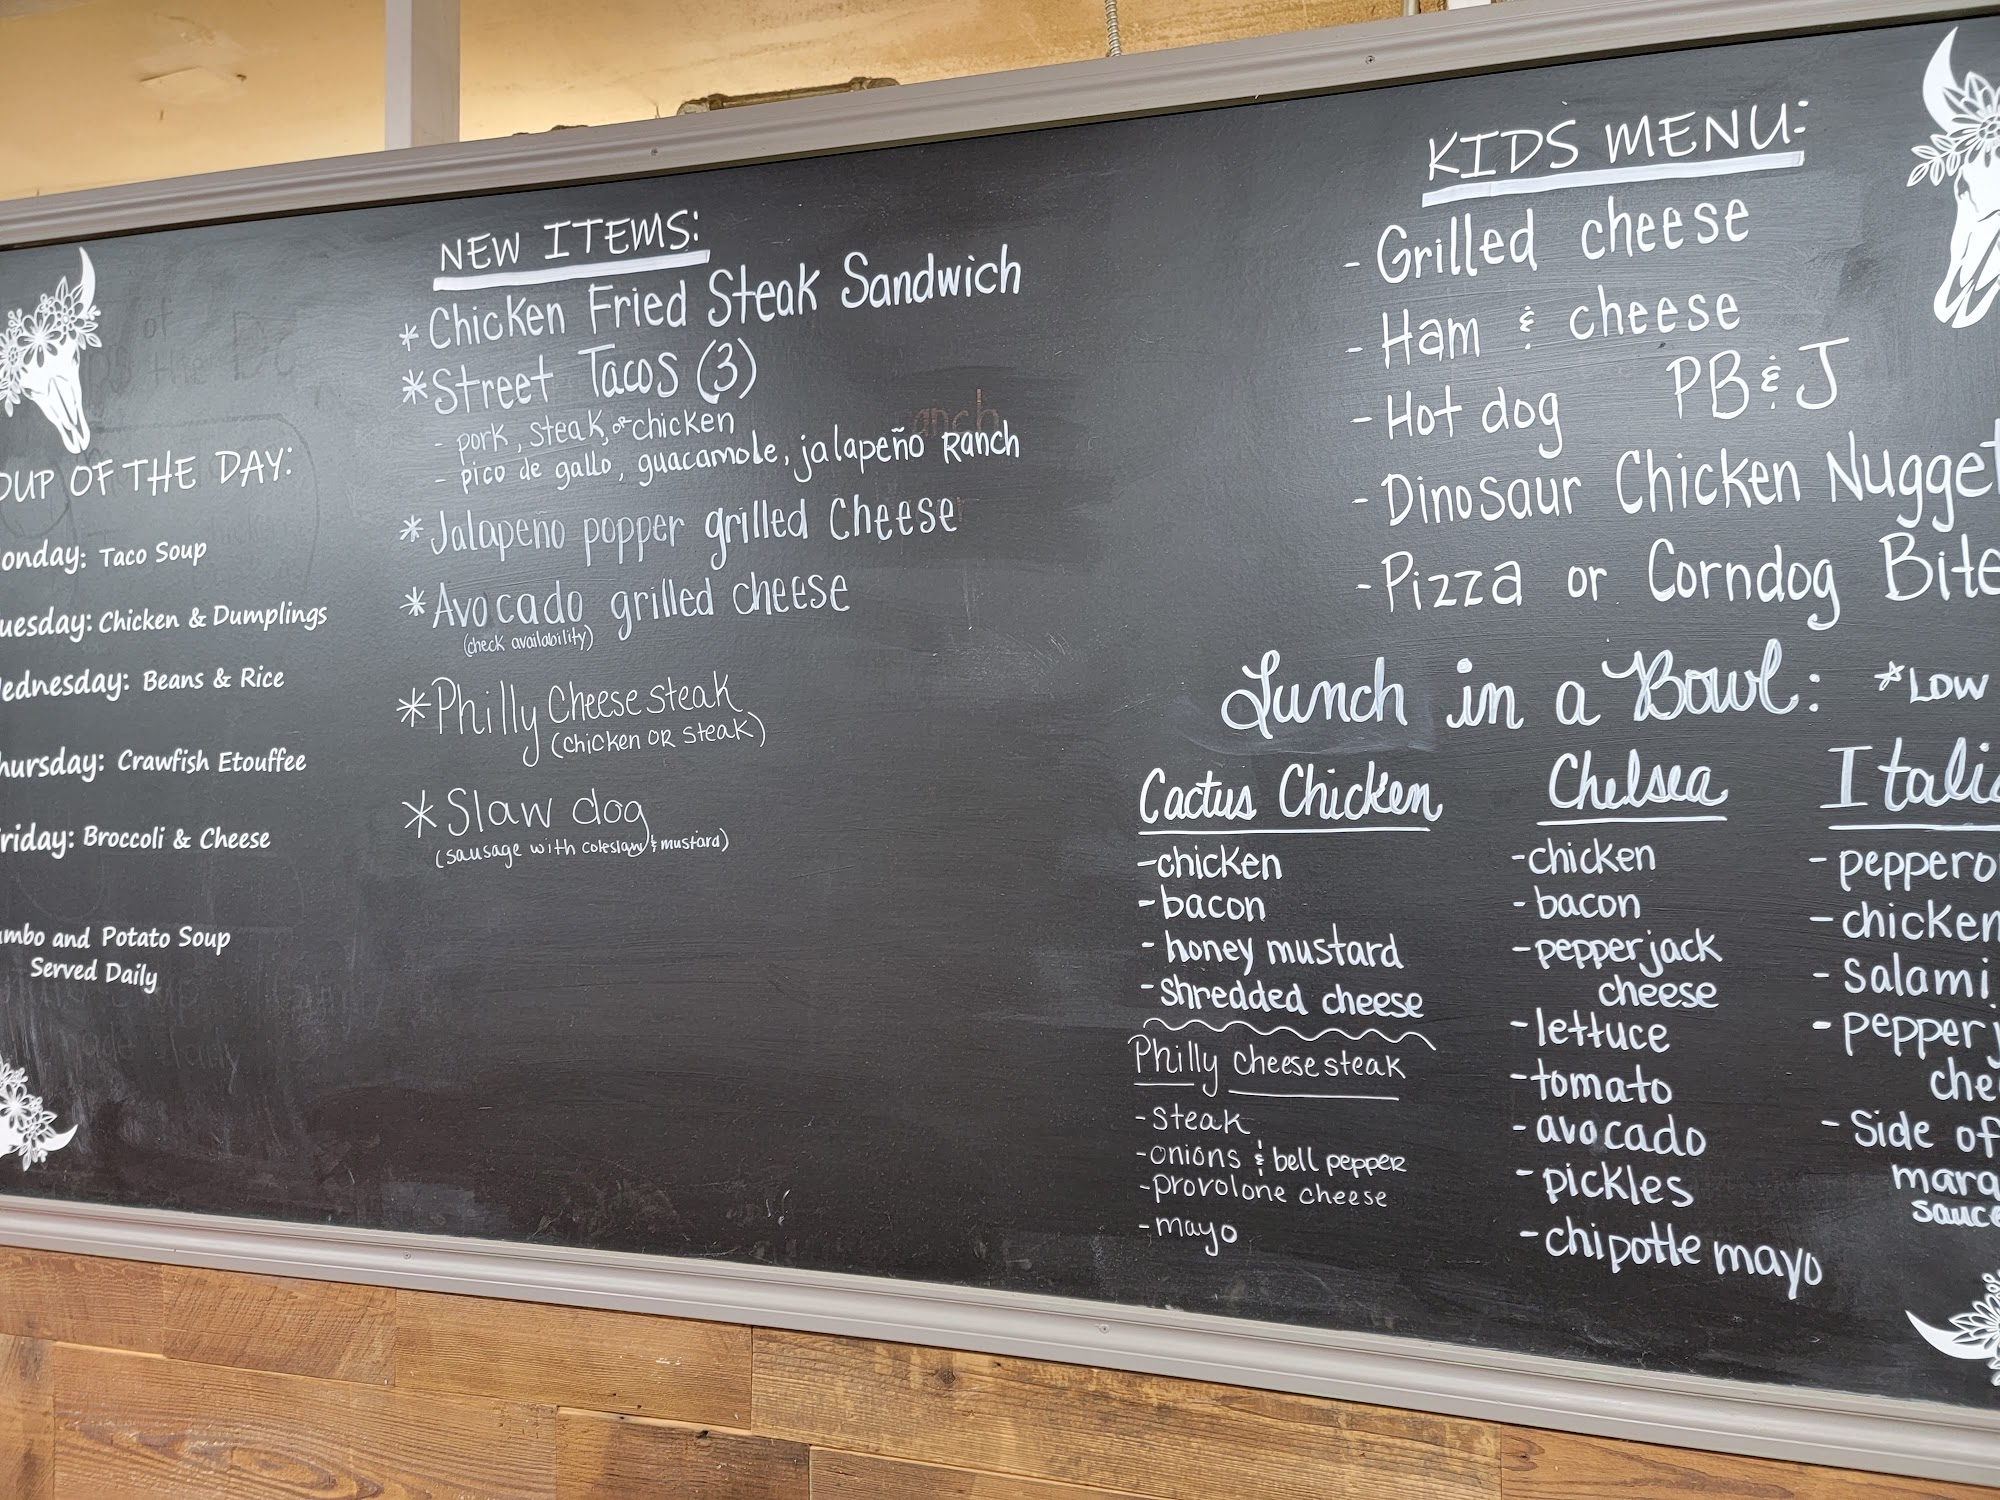 OUP OF THE DAY:
onday: Taco Soup
uesday: Chicken & Dumplings
ednesday: Beans & Rice
hursday: Crawfish Etouffee
riday: Broccoli & Cheese
mbo and Potato Soup
Served Daily
NEW ITEMS:
* Chicken Fried Steak Sandwich
* Street Tacos (3)
- pork, steak, or chicken
- pico de gallo, guacamole, jalapeño Ranch
* Jalapeño popper grilled Cheese
* Avocado grilled cheese
(check availability)
* Philly Cheese steak
(chicken OR steak)
* Slaw dog
(sausage with coleslaw & mustard)
KIDS MENU:
- Grilled cheese
- Ham & cheese
- Hot dog PB & J
- Dinosaur Chicken Nugget
- Pizza or Corndog Bite
Lunch in a Bowl: *Low
Cactus Chicken
- chicken
- bacon
- honey mustard
- shredded cheese
Philly cheese steak
- steak
- onions & bell pepper
- provolone cheese
- mayo
Chelsea
- chicken
- bacon
- pepperjack
cheese
- lettuce
- tomato
- avocado
- pickles
- chipotle mayo
Italia
- peppero
- chicken
- salami
- pepperj
che
- Side of
mara
sauce